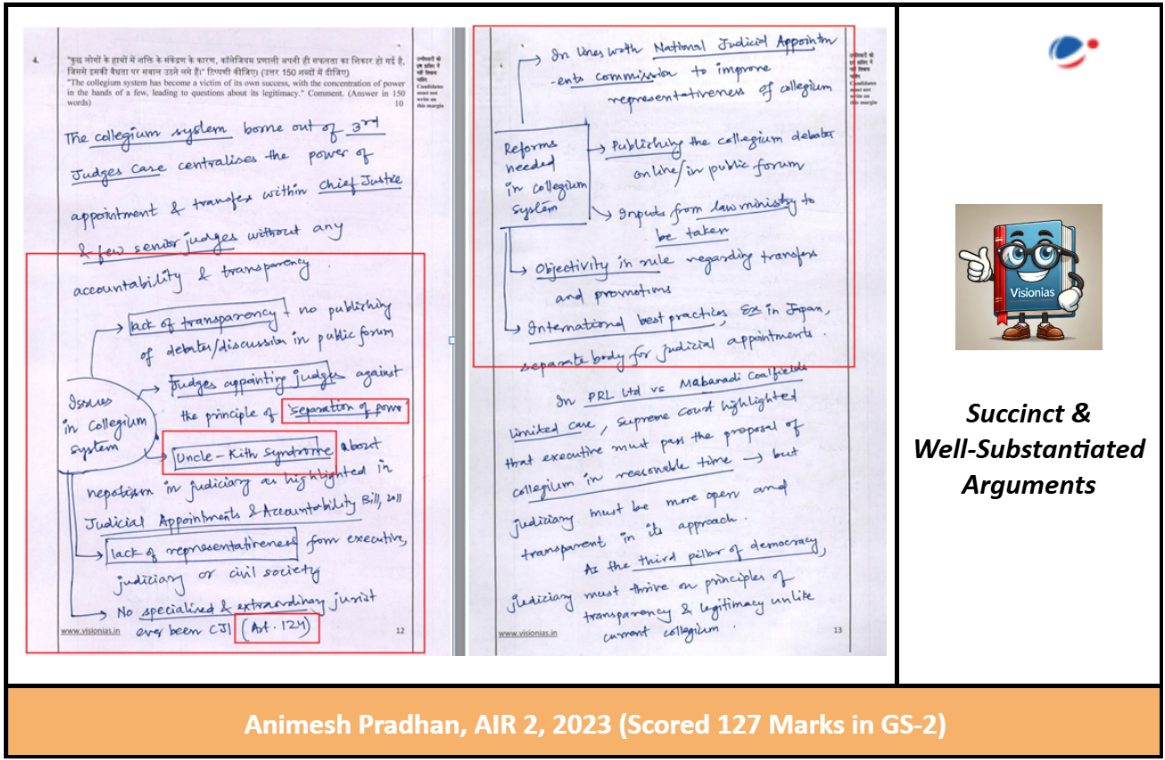 4.
"कुछ लोगों के हाथों में शक्ति के संकेंद्रण के कारण, कॉलेजियम प्रणाली अपनी ही सफलता का शिकार हो गई है,
जिससे इसकी वैधता पर सवाल उठने लगे हैं।" टिप्पणी कीजिए। (उत्तर 150 शब्दों में दीजिए)
"The collegium system has become a victim of its own success, with the concentration of power
in the hands of a few, leading to questions about its legitimacy." Comment. (Answer in 150
words)
10
उम्मीदवारों को
इस हाशिये में
नहीं लिखना
चाहिए
Candidates
must not
write on
this margin
The collegium system borne out of 3rd
Judges Case centralises the power of
appointment & transfer within Chief Justice
& few senior judges without any
accountability & transparency
Issues
in collegium
system
lack of transparency no publishing
of debates/discussion in public forum
Judges appointing judges against
the principle of 'separation of power'
Uncle-Kith Syndrome about
nepotism in judiciary as highlighted in
Judicial Appointments & Accountability Bill, 2011
lack of representativeness from executive,
judiciary or civil society
No specialised & extraordinary jurist
ever been CJI (Art. 124)
www.visionias.in
12
उम्मीदवारों को
इस हाशिये में
नहीं लिखना
चाहिए
Candidates
must not
write on
this margin
Reforms
needed
in collegium
system
In lines with National Judicial Appointm
-ents commission to improve
representativeness of collegium
Publishing the collegium debates
online/in public forum
Inputs from law ministry to
be taken
Objectivity in rule regarding transfers
and promotions
International best practices, Ex in Japan,
separate body for judicial appointments.
In PRL Ltd vs Mahanadi Coalfields
limited case, Supreme Court highlighted
that executive must pass the proposal of
collegium in reasonable time → but
judiciary must be more open and
transparent in its approach.
As the third pillar of democracy,
judiciary must thrive on principles of
transparency & legitimacy unlike
current collegium.
www.visionias.in
13
Visionias
Succinct &
Well-Substantiated
Arguments
Animesh Pradhan, AIR 2, 2023 (Scored 127 Marks in GS-2)